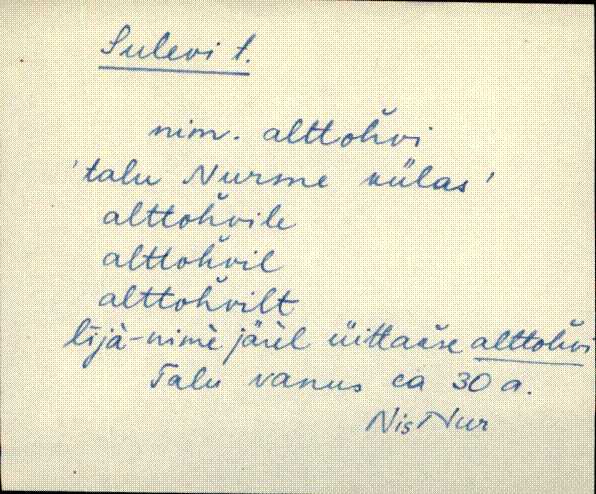 Sulevi t.
nim. alttohvi
'talu Nurme külas'
alttohvile
alttohvil
alttohvilt
lijà-nimè järèl üittäse alttohvi
Talu vanus ca 30 a.
Nis Nur